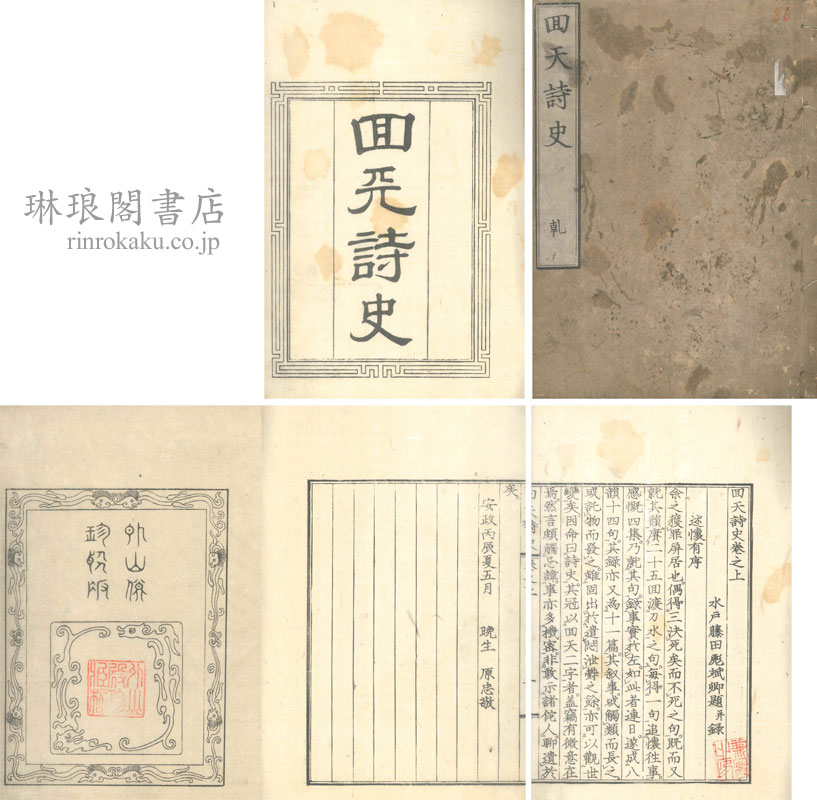 琳琅閣書店
rinrokaku.co.jp
囬天詩史
囬天詩史 乹
囬天詩史卷之上
水戸藤田彪斌卿題并錄
述懷有序
余之獲罪屏居也偶得三決死矣而不死之句既而又
就其韻賡二十五回渡刀水之句每得一句追懷往事
感慨四集乃就其句錄事實於左如此者連日遂成八
韻十四句其錄亦又為十一篇其叙事或觸類而長之
或託物而發之雖固出於遣悶泄鬱之餘亦可以觀世
變矣因命曰詩史其冠以回天二字者蓋竊有微意在
焉然言頗觸忌諱事亦多機密非敢示諸佗人聊遺於
矣
安政丙辰夏五月 晚生 原忠敬